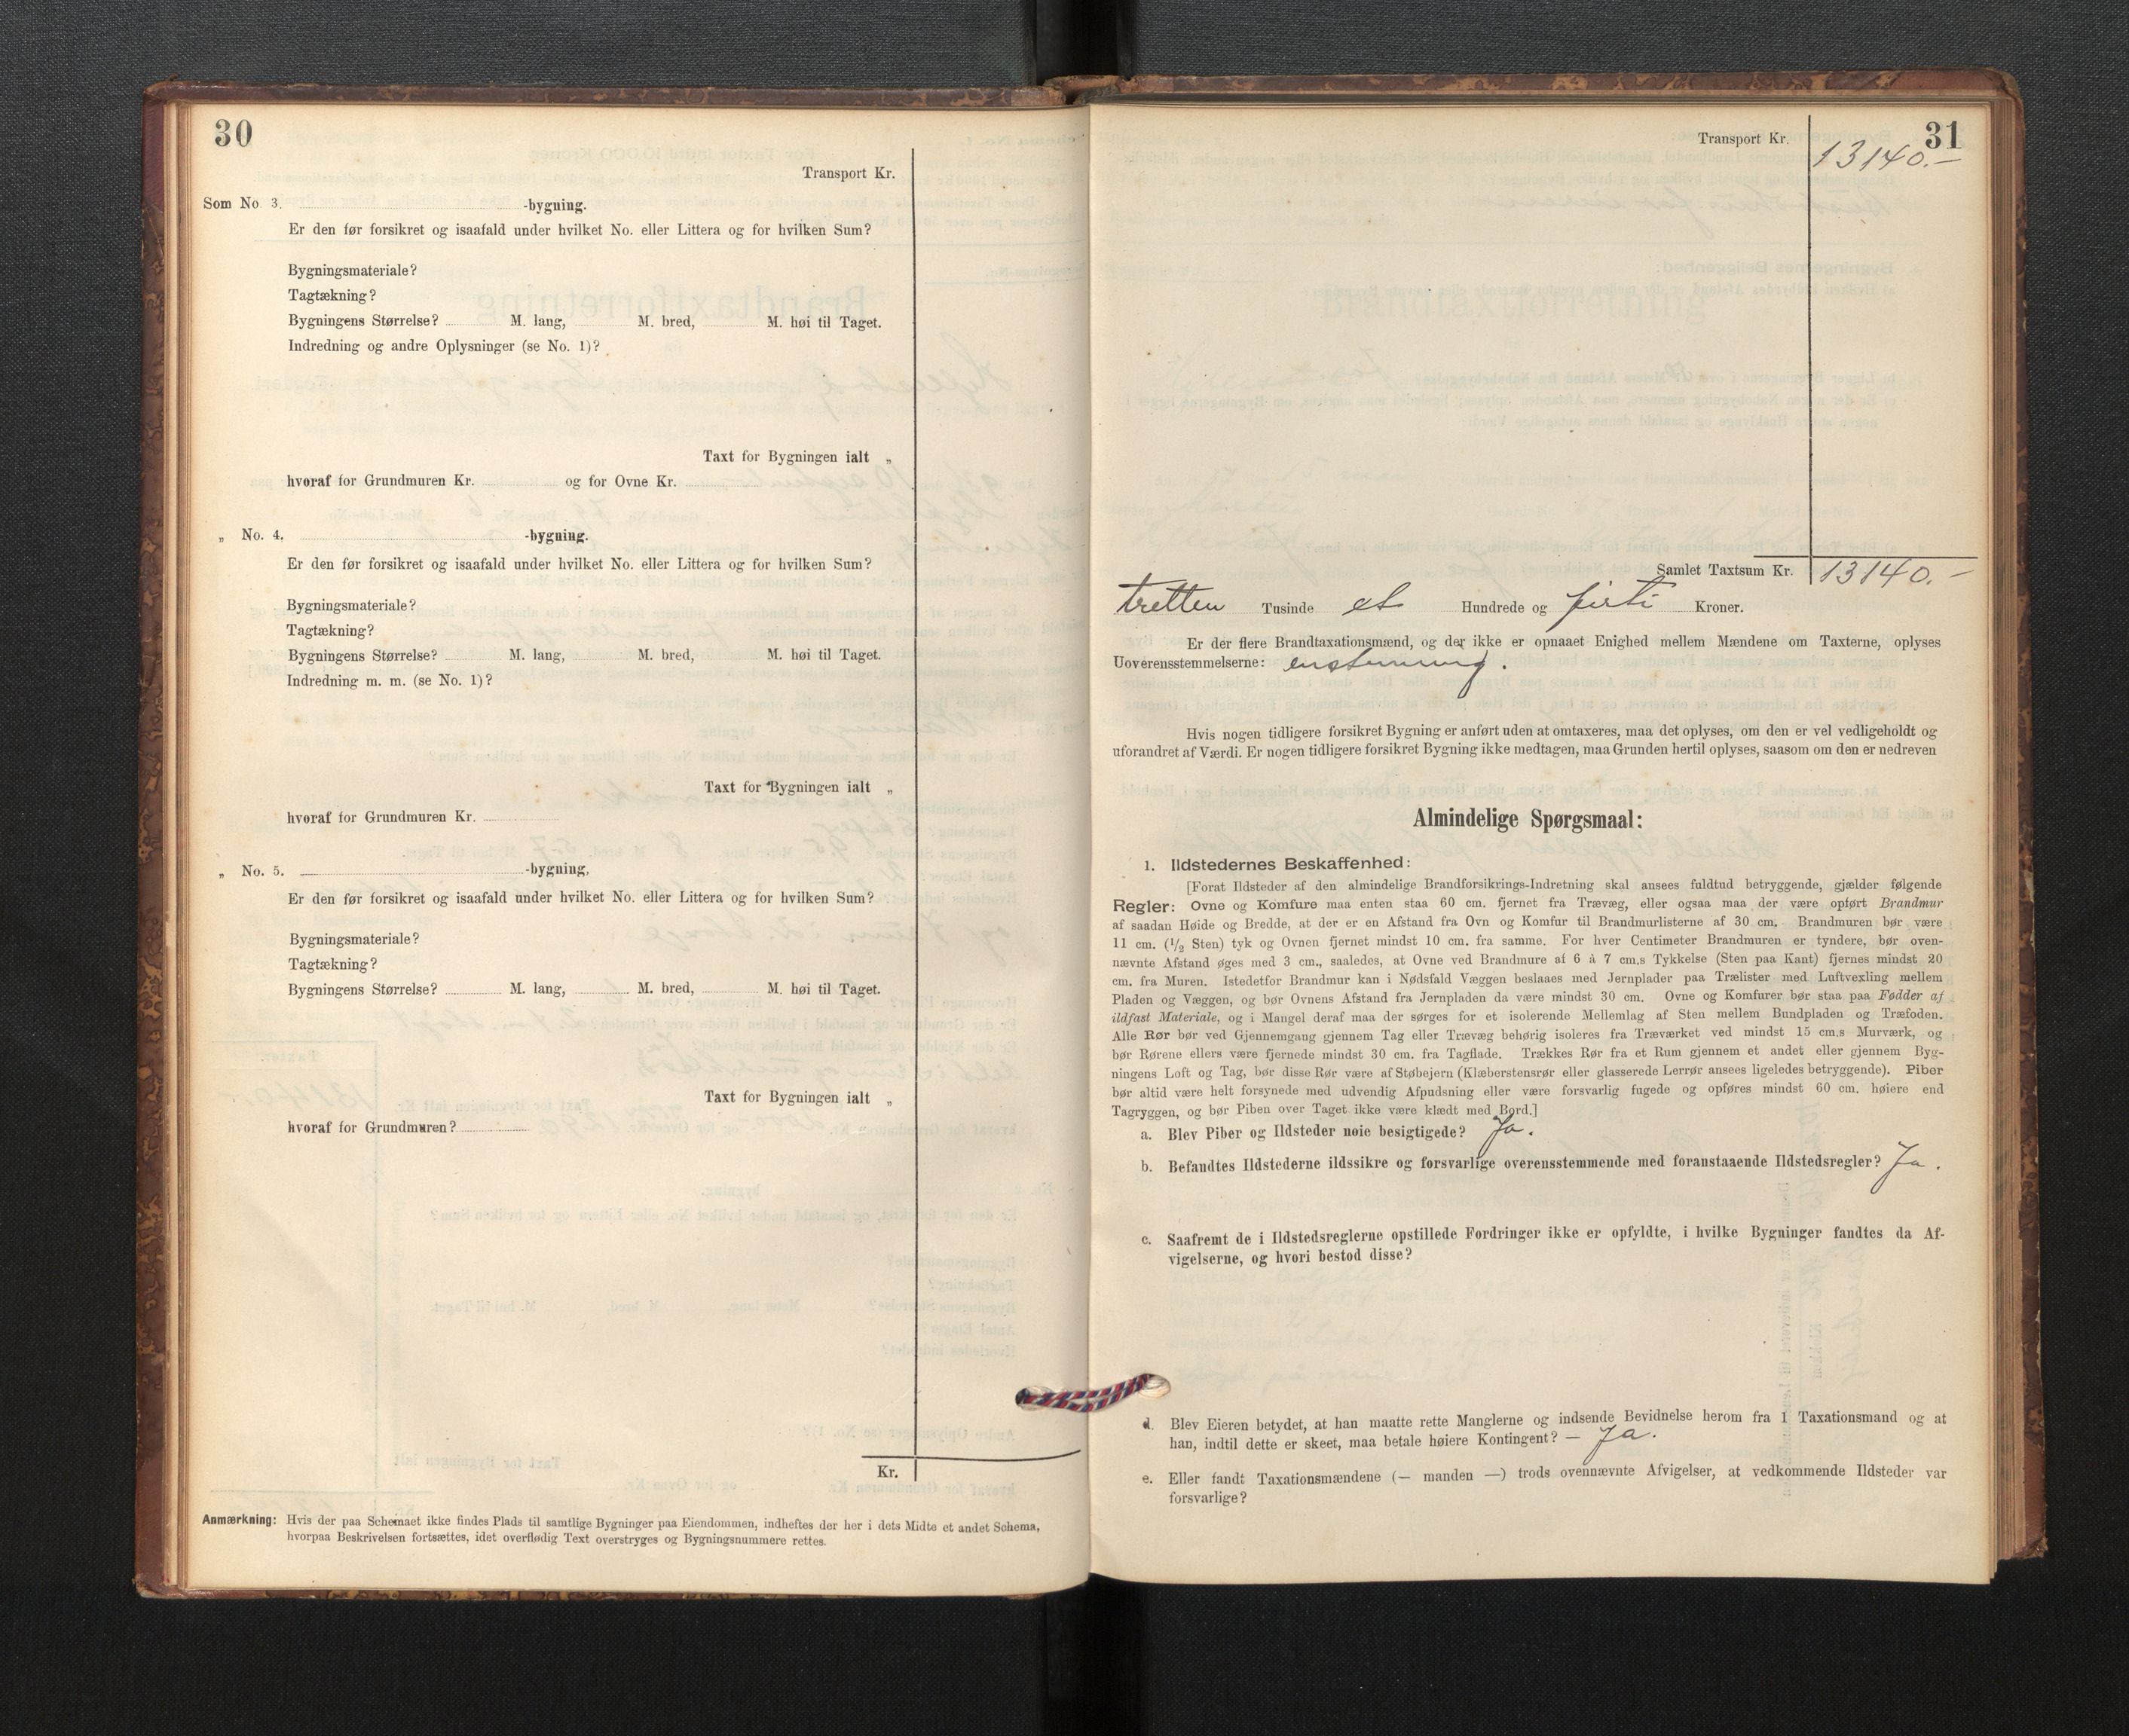 30
Transport Kr.
Som No 3. -bygning.
Er den før forsikret og isaafald under hvilket No. eller Littera og for hvilken Sum?
Bygningsmateriale?
Tagtækning?
Bygningens Størrelse? M. lang, M. bred, M. høi til Taget.
Indredning og andre Oplysninger (se No. 1)?
Taxt for Bygningen ialt „
hvoraf for Grundmuren Kr. og for Ovne Kr.
„ No. 4. -bygning.
Er den før forsikret og isaafald under hvilket No. eller Littera og for hvilken Sum?
Bygningsmateriale?
Tagtækning?
Bygningens Størrelse? M. lang, M. bred, M. høi til Taget.
Indredning m. m. (se No. 1)?
Taxt for Bygningen ialt „
hvoraf for Grundmuren Kr.
„ No. 5. -bygning,
Er den før forsikret og isaafald under hvilket No. eller Littera og for hvilken Sum?
Bygningsmateriale?
Tagtækning?
Bygningens Størrelse? M. lang, M. bred, M. høi til Taget.
Taxt for Bygningen ialt „
hvoraf for Grundmuren?
Kr.
Anmærkning: Hvis der paa Schemaet ikke findes Plads til samtlige Bygninger paa Eiendommen, indheftes der her i dets Midte et andet Schema,
hvorpaa Beskrivelsen fortsættes, idet overflødig Text overstryges og Bygningsnummere rettes.
31
Transport Kr. 13140.-
Samlet Taxtsum Kr. 13140.-
tretten Tusinde et Hundrede og firti Kroner.
Er der flere Brandtaxationsmænd, og der ikke er opnaaet Enighed mellem Mændene om Taxterne, oplyses
Uoverensstemmelserne: enstemmig.
Hvis nogen tidligere forsikret Bygning er anført uden at omtaxeres, maa det oplyses, om den er vel vedligeholdt og
uforandret af Værdi. Er nogen tidligere forsikret Bygning ikke medtagen, maa Grunden hertil oplyses, saasom om den er nedreven
Almindelige Spørgsmaal:
1. Ildstedernes Beskaffenhed:
[Forat Ildsteder af den almindelige Brandforsikrings-Indretning skal ansees fuldtud betryggende, gjælder følgende
Regler: Ovne og Komfure maa enten staa 60 cm. fjernet fra Trævæg, eller ogsaa maa der være opført Brandmur
af saadan Høide og Bredde, at der er en Afstand fra Ovn og Komfur til Brandmurlisterne af 30 cm. Brandmuren bør være
11 cm. (1/2 Sten) tyk og Ovnen fjernet mindst 10 cm. fra samme. For hver Centimeter Brandmuren er tyndere, bør oven-
nævnte Afstand øges med 3 cm., saaledes, at Ovne ved Brandmure af 6 à 7 cm.s Tykkelse (Sten paa Kant) fjernes mindst 20
cm. fra Muren. Istedetfor Brandmur kan i Nødsfald Væggen beslaaes med Jernplader paa Trælister med Luftvexling mellem
Pladen og Væggen, og bør Ovnens Afstand fra Jernpladen da være mindst 30 cm. Ovne og Komfurer bør staa paa Fødder af
ildfast Materiale, og i Mangel deraf maa der sørges for et isolerende Mellemlag af Sten mellem Bundpladen og Træfoden.
Alle Rør bør ved Gjennemgang gjennem Tag eller Trævæg behørig isoleres fra Træværket ved mindst 15 cm.s Murværk, og
bør Rørene ellers være fjernede mindst 30 cm. fra Tagflade. Trækkes Rør fra et Rum gjennem et andet eller gjennem Byg-
ningens Loft og Tag, bør disse Rør være af Støbejern (Klæberstensrør eller glasserede Lerrør ansees ligeledes betryggende). Piber
bør altid være helt forsynede med udvendig Afpudsning eller være forsvarlig fugede og opføres mindst 60 cm. høiere end
Tagryggen, og bør Piben over Taget ikke være klædt med Bord.]
a. Blev Piber og Ildsteder nøie besigtigede? Ja.
b. Befandtes Ildstederne ildssikre og forsvarlige overensstemmende med foranstaaende Ildstedsregler? Ja.
c. Saafremt de i Ildstedsreglerne opstillede Fordringer ikke er opfyldte, i hvilke Bygninger fandtes da Af-
vigelserne, og hvori bestod disse?
d. Blev Eieren betydet, at han maatte rette Manglerne og indsende Bevidnelse herom fra 1 Taxationsmand og at
han, indtil dette er skeet, maa betale høiere Kontingent? — Ja.
e. Eller fandt Taxationsmændene (— manden —) trods ovennævnte Afvigelser, at vedkommende Ildsteder var
forsvarlige?